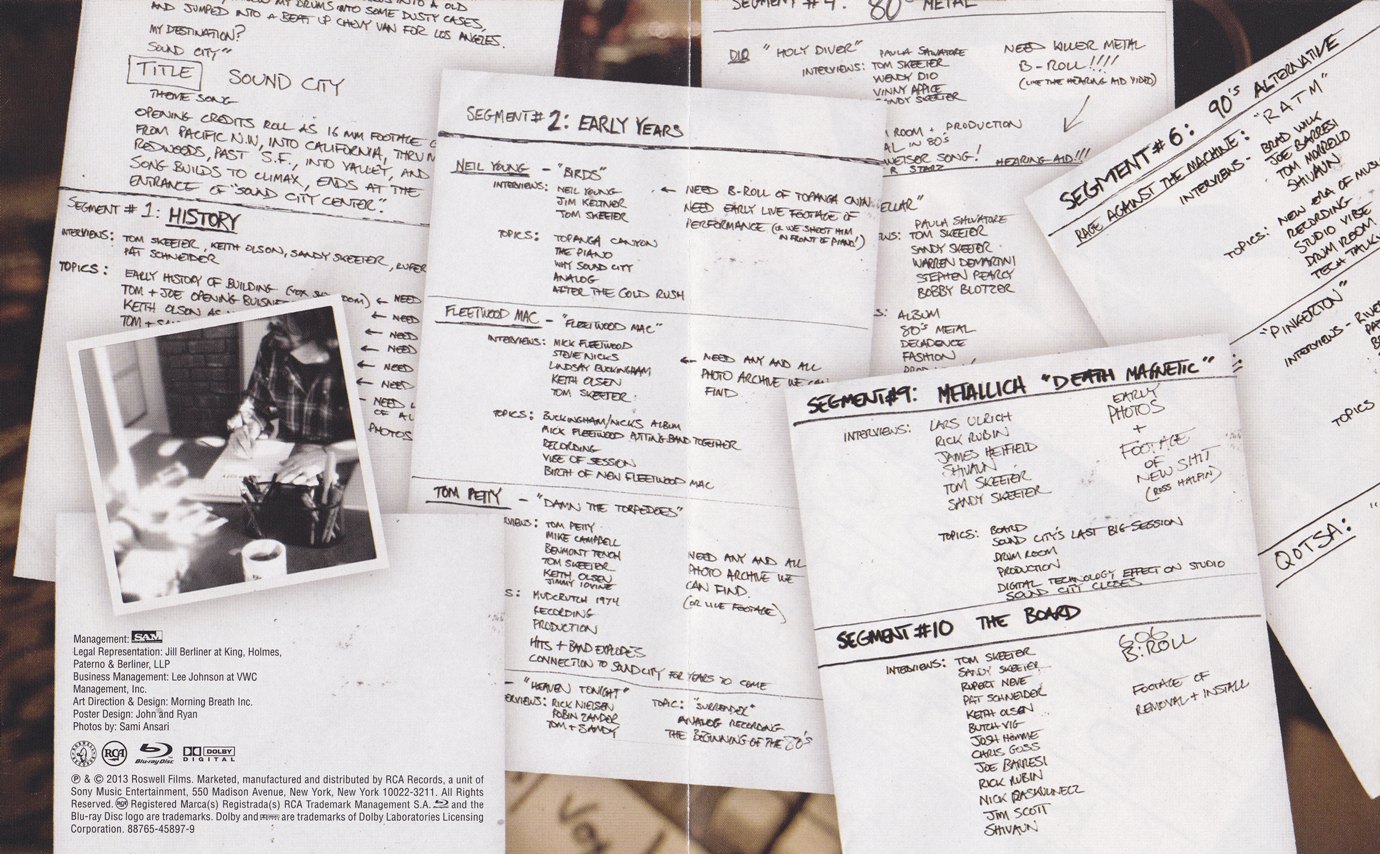 AND JUMPED INTO A BEAT UP CHEVY VAN FOR LOS ANGELES.
MY DESTINATION?
SOUND CITY"
TITLE SOUND CITY
THEME SONG
OPENING CREDITS ROLL AS 16 MM FOOTAGE
FROM PACIFIC N.W, INTO CALIFORNIA, THRU
REDWOODS, PAST S.F., INTO VALLEY, AND
SONG BUILDS TO CLIMAX, ENDS AT THE
ENTRANCE OF "SOUND CITY CENTER".
SEGMENT # 1: HISTORY
INTERVIEWS: TOM SKEETER, KEITH OLSON, SANDY SKEETER,
PAT SCHNEIDER
TOPICS: EARLY HISTORY OF BUILDING ← NEED
TOM + JOE OPENING ← NEED
KEITH OLSON AS ← NEED
TOM + ← NEED
← NEED
← NEED
← NEED
PHOTOS
SEGMENT # 2: EARLY YEARS
NEIL YOUNG - "BIRDS"
INTERVIEWS: NEIL YOUNG
JIM KELTNER
TOM SKEETER
← NEED B-ROLL OF TOPANGA
NEED EARLY LIVE FOOTAGE OF
PERFORMANCE (OR WE SHOOT HIM
IN FRONT OF PIANO!)
TOPICS: TOPANGA CANYON
THE PIANO
WHY SOUND CITY
ANALOG
AFTER THE GOLD RUSH
FLEETWOOD MAC - "FLEETWOOD MAC"
INTERVIEWS: MICK FLEETWOOD
STEVIE NICKS
LINDSAY BUCKINGHAM
KEITH OLSEN
TOM SKEETER
← NEED ANY AND ALL
PHOTO ARCHIVE WE CAN
FIND
TOPICS: BUCKINGHAM/NICKS ALBUM
MICK FLEETWOOD PUTTING BAND TOGETHER
RECORDING
VIBE OF SESSION
BIRTH OF NEW FLEETWOOD MAC
TOM PETTY - "DAMN THE TORPEDOES"
TOM PETTY
MIKE CAMPBELL
BENMONT TENCH
TOM SKEETER
KEITH OLSEN
JIMMY IOVINE
NEED ANY AND ALL
PHOTO ARCHIVE WE
CAN FIND.
(OR LIVE FOOTAGE)
MUDCRUTCH 1974
RECORDING
PRODUCTION
HITS + BAND EXPLODES
CONNECTION TO SOUND CITY FOR YEARS TO COME
- "HEAVEN TONIGHT" TOPIC: "SURRENDER"
RICK NIELSEN ANALOG RECORDING
ROBIN ZANDER THE BEGINNING OF THE 80's
TOM + SANDY
SEGMENT # 4: 80's METAL
DIO "HOLY DIVER"
INTERVIEWS: PAULA SALVATORE
TOM SKEETER
WENDY DIO
VINNY APPICE
SANDY SKEETER
NEED KILLER METAL
B-ROLL!!!!
(LIKE THE HEARING AID VIDEO)
ROOM + PRODUCTION
IN 80's
SONG! HEARING AID!!!
PAULA SALVATORE
TOM SKEETER
SANDY SKEETER
WARREN DEMARTINI
STEPHEN PEARCY
BOBBY BLOTZER
ALBUM
80's METAL
DECADENCE
FASHION
SEGMENT # 6: 90's ALTERNATIVE
RAGE AGAINST THE MACHINE: "RATM"
INTERVIEWS - BRAD WILK
JOE BARRESI
TOM MORELLO
SHIVAUN
TOPICS: NEW ERA OF
RECORDING
STUDIO VIBE
DRUM ROOM
TECH TALK
"PINKERTON"
INTERVIEWS -
TOPICS
QOTSA:
SEGMENT #9: METALLICA "DEATH MAGNETIC"
INTERVIEWS: LARS ULRICH
RICK RUBIN
JAMES HETFIELD
SHIVAUN
TOM SKEETER
SANDY SKEETER
EARLY
PHOTOS
+
FOOTAGE
OF
NEW SHIT
(ROSS HALFIN)
TOPICS: BOARD
SOUND CITY'S LAST BIG SESSION
DRUM ROOM
PRODUCTION
DIGITAL TECHNOLOGY EFFECT ON STUDIO
SOUND CITY CLOSES
SEGMENT #10 THE BOARD
INTERVIEWS: TOM SKEETER
SANDY SKEETER
RUPERT NEVE
PAT SCHNEIDER
KEITH OLSEN
BUTCH VIG
JOSH HOMME
CHRIS GOSS
JOE BARRESI
RICK RUBIN
NICK RASKULINECZ
JIM SCOTT
SHIVAUN
606
B-ROLL
FOOTAGE OF
REMOVAL + INSTALL
Management: SAM
Legal Representation: Jill Berliner at King, Holmes,
Paterno & Berliner, LLP
Business Management: Lee Johnson at VWC
Management, Inc.
Art Direction & Design: Morning Breath Inc.
Poster Design: John and Ryan
Photos by: Sami Ansari
RCA Blu-ray Disc DOLBY DIGITAL
℗ & © 2013 Roswell Films. Marketed, manufactured and distributed by RCA Records, a unit of
Sony Music Entertainment, 550 Madison Avenue, New York, New York 10022-3211. All Rights
Reserved. ® Registered Marca(s) Registrada(s) RCA Trademark Management S.A. and the
Blu-ray Disc logo are trademarks. Dolby and are trademarks of Dolby Laboratories Licensing
Corporation. 88765-45897-9